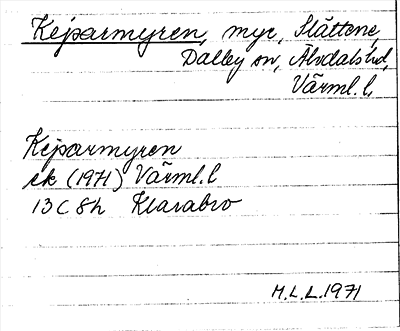 Kejparmyren, myr, Slättene,
Dalby sn, Älvdals hd,
Värml. l,
Kejparmyren
ek (1971) Värml. l
13C 8h Klarabro
M.L.L. 1971